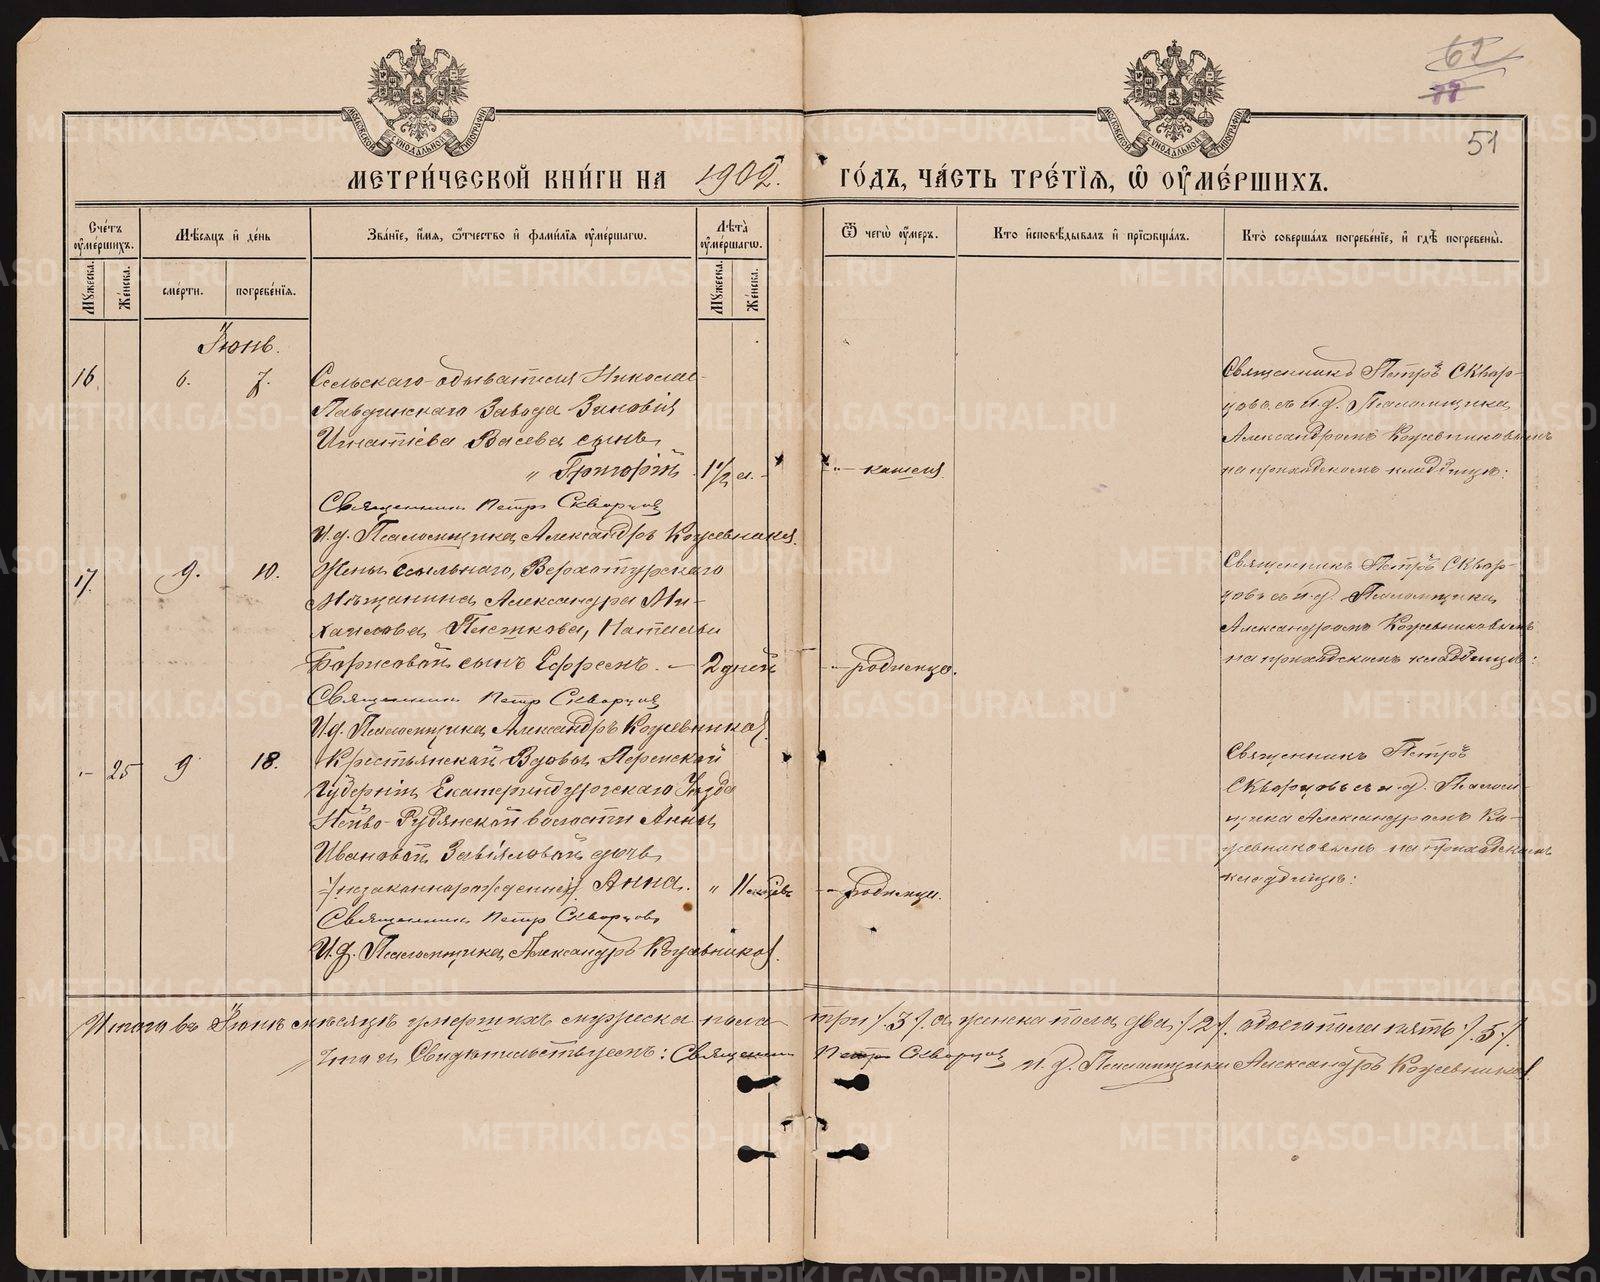 62
51
МОСКОВСКОЙ СѴНОДАЛЬНОЙ ТИПОГРАФІИ
МОСКОВСКОЙ СѴНОДАЛЬНОЙ ТИПОГРАФІИ
МЕТРИ́ЧЕСКОЙ КНИ́ГИ НА 1902 ГО́ДЪ, ЧА́СТЬ ТРЕ́ТІѦ, Ѿ ОУ҆МЕ́РШИХЪ.
Сче́тъ оу҆ме́ршихъ.
Мѣ́сяцъ и҆ де́нь
Зва́ніе, и҆́мя, ѻ҆́тчество и҆ фами́лія оу҆ме́ршагѡ.
Лѣ́та̀ оу҆ме́ршагѡ.
Ѿ чегѡ̀ оу҆́мер.
Кто̀ и҆сповѣ́дывалъ и҆ прїѡбща́лъ.
Кто̀ соверша́лъ погребе́ніе, и҆ гдѣ̀ погребены̀.
Мꙋ́жеска.
Же́нска.
сме́рти.
погребе́нія.
Мꙋ́жеска.
Же́нска.
Іюнь.
16 6. 7. Сельскаго обывателя Николае-
Павдинскаго Завода Зиновія
Игнатіева Васева сынъ
„ Григорій 1½ м. - „ — кашеля
Священникъ Петръ Скворцовъ
И.д. Псаломщика Александръ Кожевниковъ
Священникъ Петръ Сквор-
цовъ съ и.д. Псаломщика
Александромъ Кожевниковымъ
на приходскомъ кладбищѣ:
17. 9. 10. Жены ссыльнаго, Верхотурскаго
Мѣщанина Александра Ми-
хаилова Пасткова, Натальи
Борисовой сынъ Ефремъ. — 2 дней — родимца.
Священникъ Петръ Скворцовъ
И.д. Псаломщика Александръ Кожевниковъ
Священникъ Петръ Сквор-
цовъ съ и.д. Псаломщика
Александромъ Кожевниковымъ
на приходскомъ кладбищѣ:
„ — 25 9 18. Крестьянской Вдовы Пермской
Губерніи Екатеринбургскаго Уѣзда
Нейво-Рудянской волости Анны
Ивановой Завьяловой дочь
/незаконнорожденная/ Анна. „ 11 мѣсяцевъ — родимца.
Священникъ Петръ Скворцовъ
И.д. Псаломщика Александръ Кожевниковъ
Священникъ Петръ
Скворцовъ съ и.д. Псалом-
щика Александромъ Ко-
жевниковымъ на приходскомъ
кладбищѣ:
Итого въ Іюнѣ мѣсяцѣ умершихъ мужеска пола три /. 3 /. а женска пола два /. 2 /. обоего пола пять /. 5 /.
Свидѣтельствуемъ: Священникъ Петръ Скворцовъ и.д. Псаломщика Александръ Кожевниковъ
METRIKI.GASO-URAL.RU